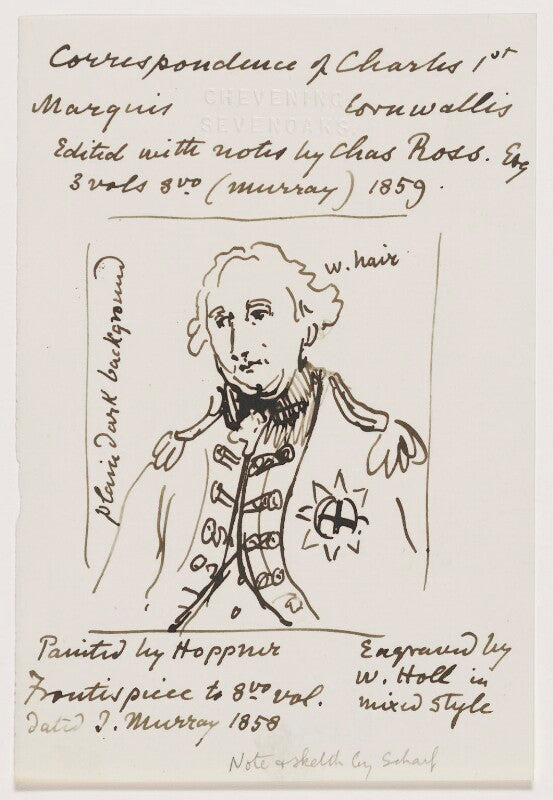 Correspondence of Charles 1st
Marquis Cornwallis
CHEVENING
SEVENOAKS.
Edited with notes by Chas Ross. Esq
3 vols 8vo (Murray) 1859.
w. hair
plain dark background
Painted by Hoppner
Frontispiece to 8vo vol.
dated J. Murray 1858
Engraved by
W. Holl in
mixed style
Note & sketch by Scharf